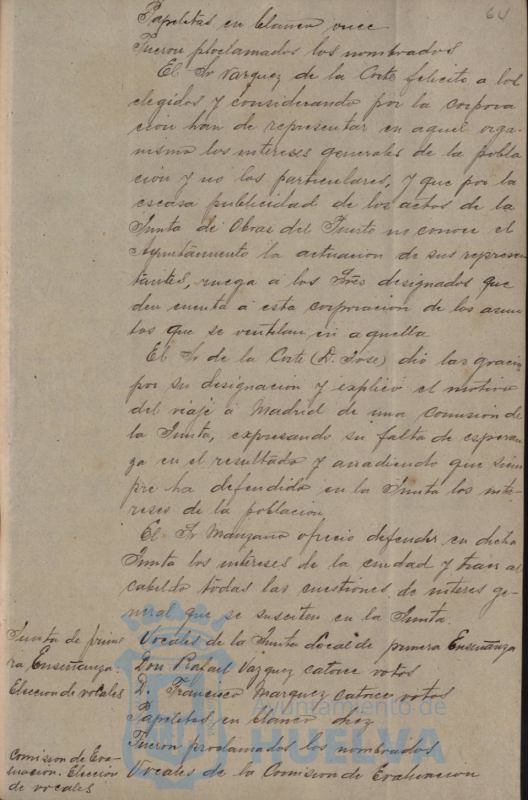 64
Papeletas en blanco once
Fueron proclamados los nombrados
El Sr Vazquez de la Corte felicito a los
elegidos y considerando por la corpora
cion han de representar en aquel orga-
nismo los intereses generales de la pobla
cion y no los particulares, y que por la
escasa publicidad de los actos de la
Junta de Obras del Puerto no conoce el
Ayuntamiento la actuacion de sus represen
tantes, ruega á los Sres designados que
den cuenta á esta corporacion de los asun
tos que se ventilan en aquella
El Sr de la Corte (D. Jose) dió las gracias
por su designacion y explicó el motivo
del viaje á Madrid de una comision de
la Junta, expresando su falta de esperan
za en el resultado y anadiendo que siem
pre ha defendido en la Junta los inte-
reses de la poblacion
El Sr Manzano ofrecio defender en dicha
Junta los intereses de la ciudad y traer al
cabildo todas las cuestiones de interes ge-
neral que se susciten en la Junta.
Junta de prime
ra Enseñanza.
Eleccion de vocales
Vocales de la Junta Local de primera Enseñanza
Don Rafael Vazquez catorce votos
D. Francisco Marquez catorce votos
Papeletas en blanco diez
Fueron proclamados los nombrados
Comision de Eva-
luacion. Eleccion
de vocales
Vocales de la Comision de Evaluacion
Ayuntamiento de
HUELVA